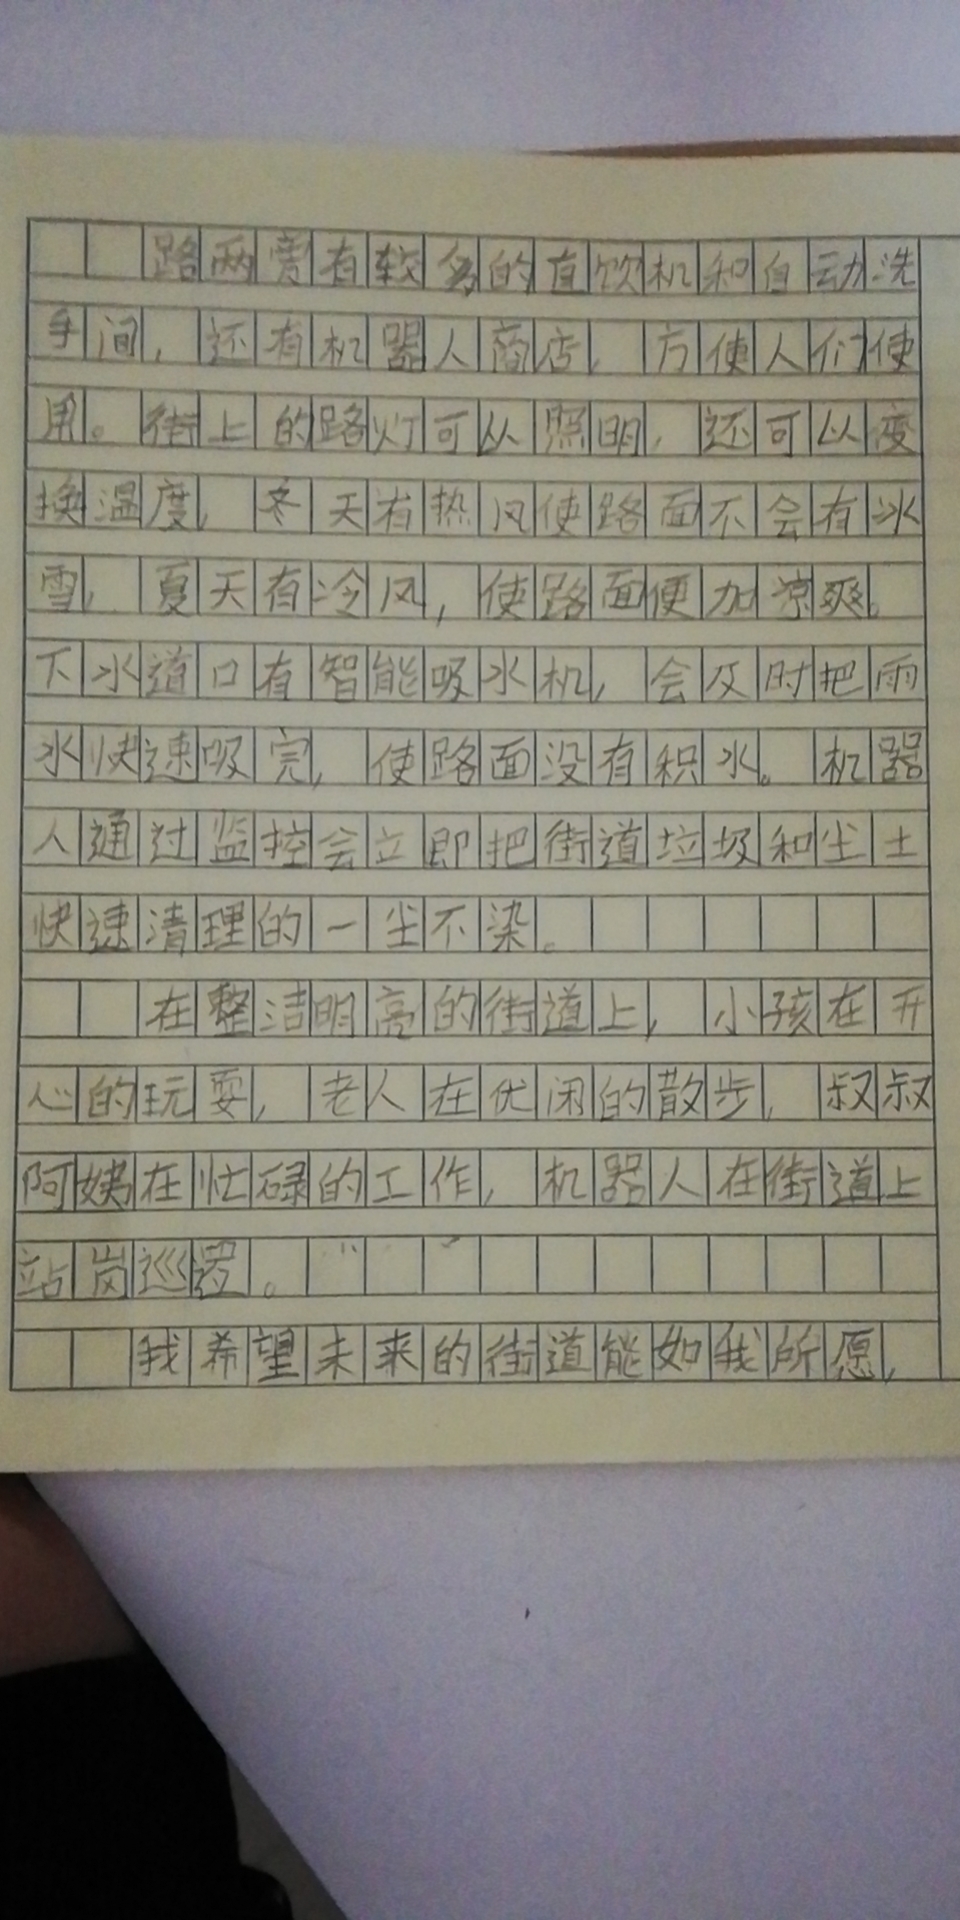 路两旁有较多的直饮机和自动洗
手间，还有机器人商店，方使人们使
用。街上的路灯可以照明，还可以变
换温度，冬天有热风使路面不会有冰
雪，夏天有冷风，使路面便加凉爽。
下水道口有智能吸水机，会及时把雨
水快速吸完，使路面没有积水。机器
人通过监控会立即把街道垃圾和尘土
快速清理的一尘不染。
在整洁明亮的街道上，小孩在开
心的玩耍，老人在优闲的散步，叔叔
阿姨在忙碌的工作，机器人在街道上
站岗巡逻。
我希望未来的街道能如我所愿，